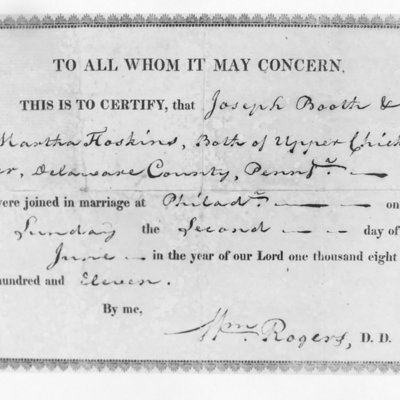 TO ALL WHOM IT MAY CONCERN.
THIS IS TO CERTIFY, that Joseph Booth &
Martha Hoskins, Both of Upper Chich
er, Delaware County, Pennsa.
were joined in marriage at Philada. on
Sunday the Second day of
June in the year of our Lord one thousand eight
hundred and Eleven.
By me,
Wm. Rogers, D. D.